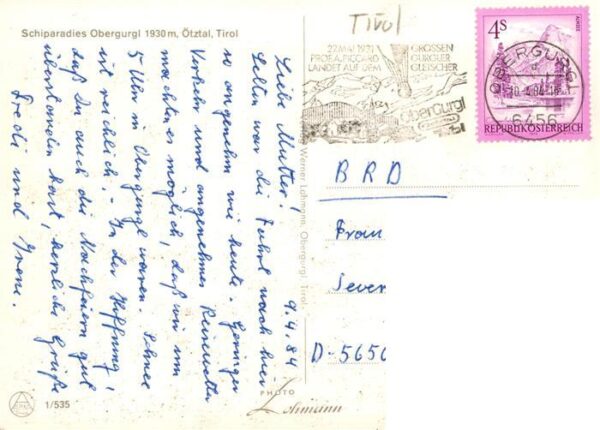 Schiparadies Obergurgl 1930 m, Ötztal, Tirol
9.4.84
Liebe Mutter!
Selten war die Fahrt nach hier
so angenehm wie heute. Geringer
Verkehr und angenehmes Reisewetter
machten es möglich, daß wir um
5 Uhr in Obergurgl waren. Schnee
ist reichlich. - In der Hoffnung,
daß Du auch die Nachfeiern gut
überstanden hast, herzliche Grüße
Fredi und Irene.
1/535
Werner Lohmann, Obergurgl, Tirol
PHOTO
Lohmann
Tirol
27. MAI 1931
PROF. A. PICCARD
LANDET AUF DEM
GROSSEN
GURGLER
GLETSCHER
Obergurgl
4S
REPUBLIK ÖSTERREICH
OBERGURGL
6456
BRD
Frau
Sever
D-5650